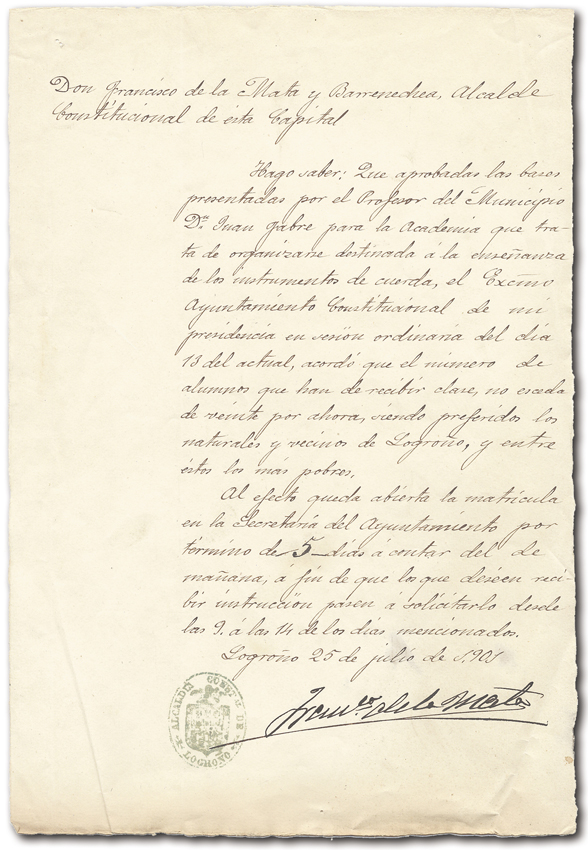 Don Francisco de la Mata y Barrenechea, Alcalde
Constitucional de ésta Capital
Hago saber: Que aprobadas las bases
presentadas por el Profesor del Municipio
Dn Juan Fabre para la Academia que tra-
ta de organizarse destinada á la enseñanza
de los instrumentos de cuerda, el Excmo
Ayuntamiento Constitucional de mi
presidencia en sesión ordinaria del dia
13 del actual, acordó que el número de
alumnos que han de recibir clase, no esceda
de veinte por ahora, siendo preferidos los
naturales y vecinos de Logroño, y entre
éstos los más pobres.
Al efecto queda abierta la matrícula
en la Secretaría del Ayuntamiento por
término de 5 dias á contar del de
mañana, á fin de que los que deseen reci-
bir instrucción pasen á solicitarlo desde
las 9. á las 14 de los días mencionados.
Logroño 25 de julio de 1.901
Francco de la Mata
ALCALDIA CONSTAL DE
LOGROÑO